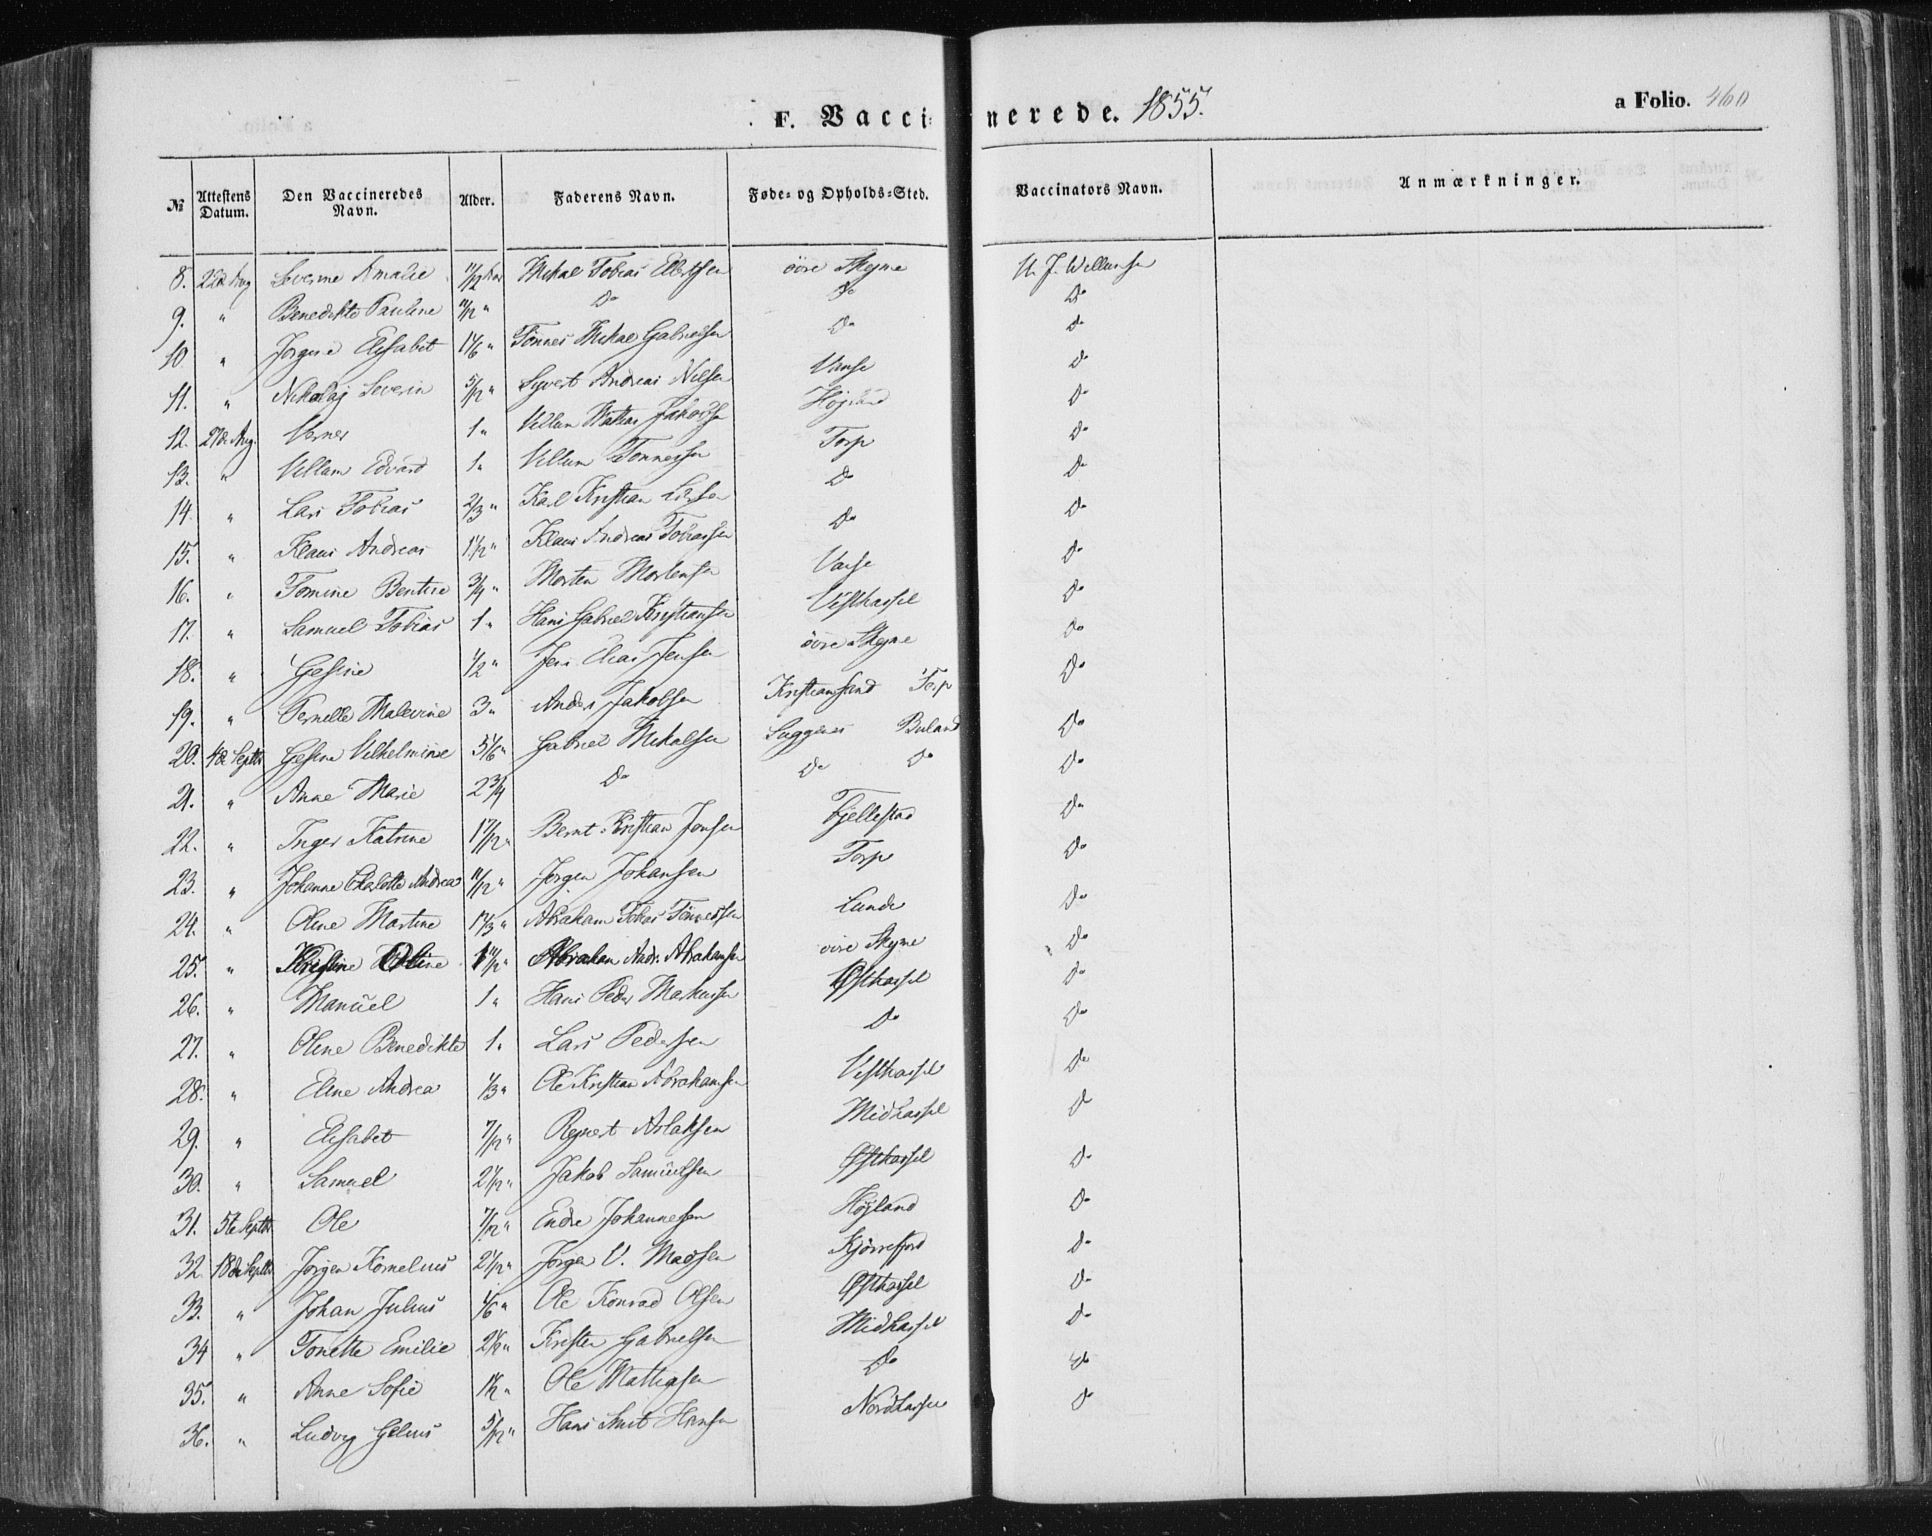 F. Vaccinerede. 1855.
a Folio. 460
№ Attestens Datum. Den Vaccineredes Navn. Alder. Faderens Navn. Føde- og Opholds-Sted. Vaccinators Navn. Anmærkninger.
8. 22de Aug Severine Amalie 11/12 Aar Mikal Tobias øvre Skejne
9. " Benedikte Pauline 11/12 " Do Do Do
10 " Jørgine Elisabet 1 1/6 " Tønnes Mikal Gabrielsen Do Do
11. " Nikolaj Severin 5/12 " Syvert Andreas Nilsen Vanse Do
12. 27de Aug. Verner 1 " Villum Mattias Jakobsen Højland Do
13. " Villam Edvard 1 " Villum Tønnessen Torp Do
14. " Lars Tobias 2/3 " Karl Kristian Do Do
15. " Klaus Andreas 1 1/12 " Klaus Andreas Tobiassen Do Do
16. " Tomine Bentine 3/4 " Morten Mortensen Vanse Do
17. " Samuel Tobias 1 " Hans Gabriel Kristiansen Vesthassel Do
18. " Gesine 1/2 " Jens Elias Jensen øvre Skejne Do
19. " Pernille Malevine 3 " Anders Jakobsen Kristiansand Torp Do
20. 4de Septbr Gesine Vilhelmine 5 1/6 " Gabriel Mikalsen Buland Do
21. " Anne Marie 2 3/4 Do Do Do Do
22. " Inger Katrine 1 7/12 " Bernt Kristian Jonsen Fjellestad Do
23. " Johanne Charlotte Andrea 11/12 " Jørgen Johansen Torp Do
24. " Oline Martine 1 1/3 " Abraham Tobias Tønnessen Lunde Do
25. " Kristine Oline 1 11/12 " Abraham Andr. Abrahamsen øvre Skejne Do
26. " Manuel 1 " Hans Peder Markussen Østhassel Do
27. " Oline Benedikte 1 " Lars Pedersen Do Do
28. " Eline Andrea 1/3 " Ole Kristian Abrahamsen Vesthassel Do
29. " Elisabet 7/12 " Reinert Aslaksen Midhassel Do
30. " Samuel 2 1/12 " Jakob Samuelsen Østhassel Do
31. 5te Septbr Ole 7/12 " Endre Johannesen Højland Do
32. 18de Septbr Jørgen Kornelius 2 1/12 " Jørgen V. Madsen Kjørrefjord Do
33. " Johan Julius 1/6 " Ole Konrad Olsen Østhassel Do
34 " Tonette Emilie 2 1/6 " Kristen Gabrielsen Midhassel Do
35. " Anne Sofie 1 1/2 " Ole Mattiasen Do Do
36. " Ludvig 5/12 " Hans Smit Hansen Nordhassel Do